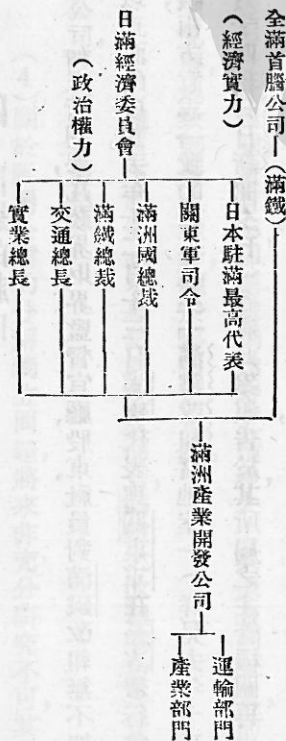 全滿首腦公司
（滿鐵）
（經濟實力）
日滿經濟委員會
（政治權力）
日本駐滿最高代表
關東軍司令
滿洲國總裁
滿鐵總裁
交通總長
實業總長
滿洲產業開發公司
運輸部門
產業部門